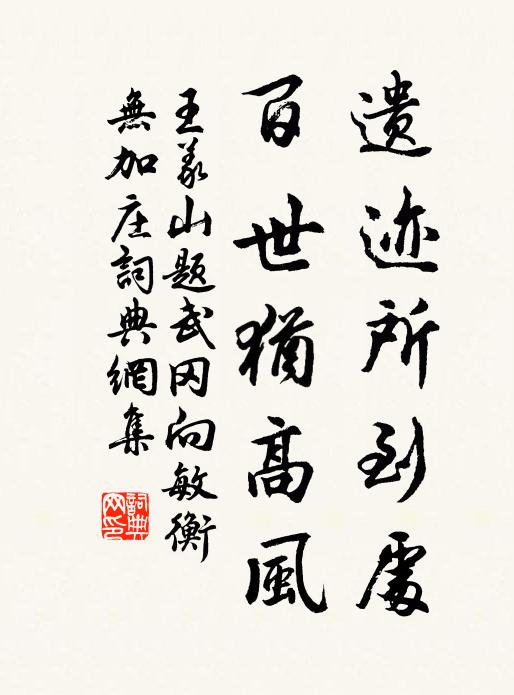 遺迹所到處
百世猶高風
王義山題武冈向敏衡
無加庄詞典網集
詞典網印